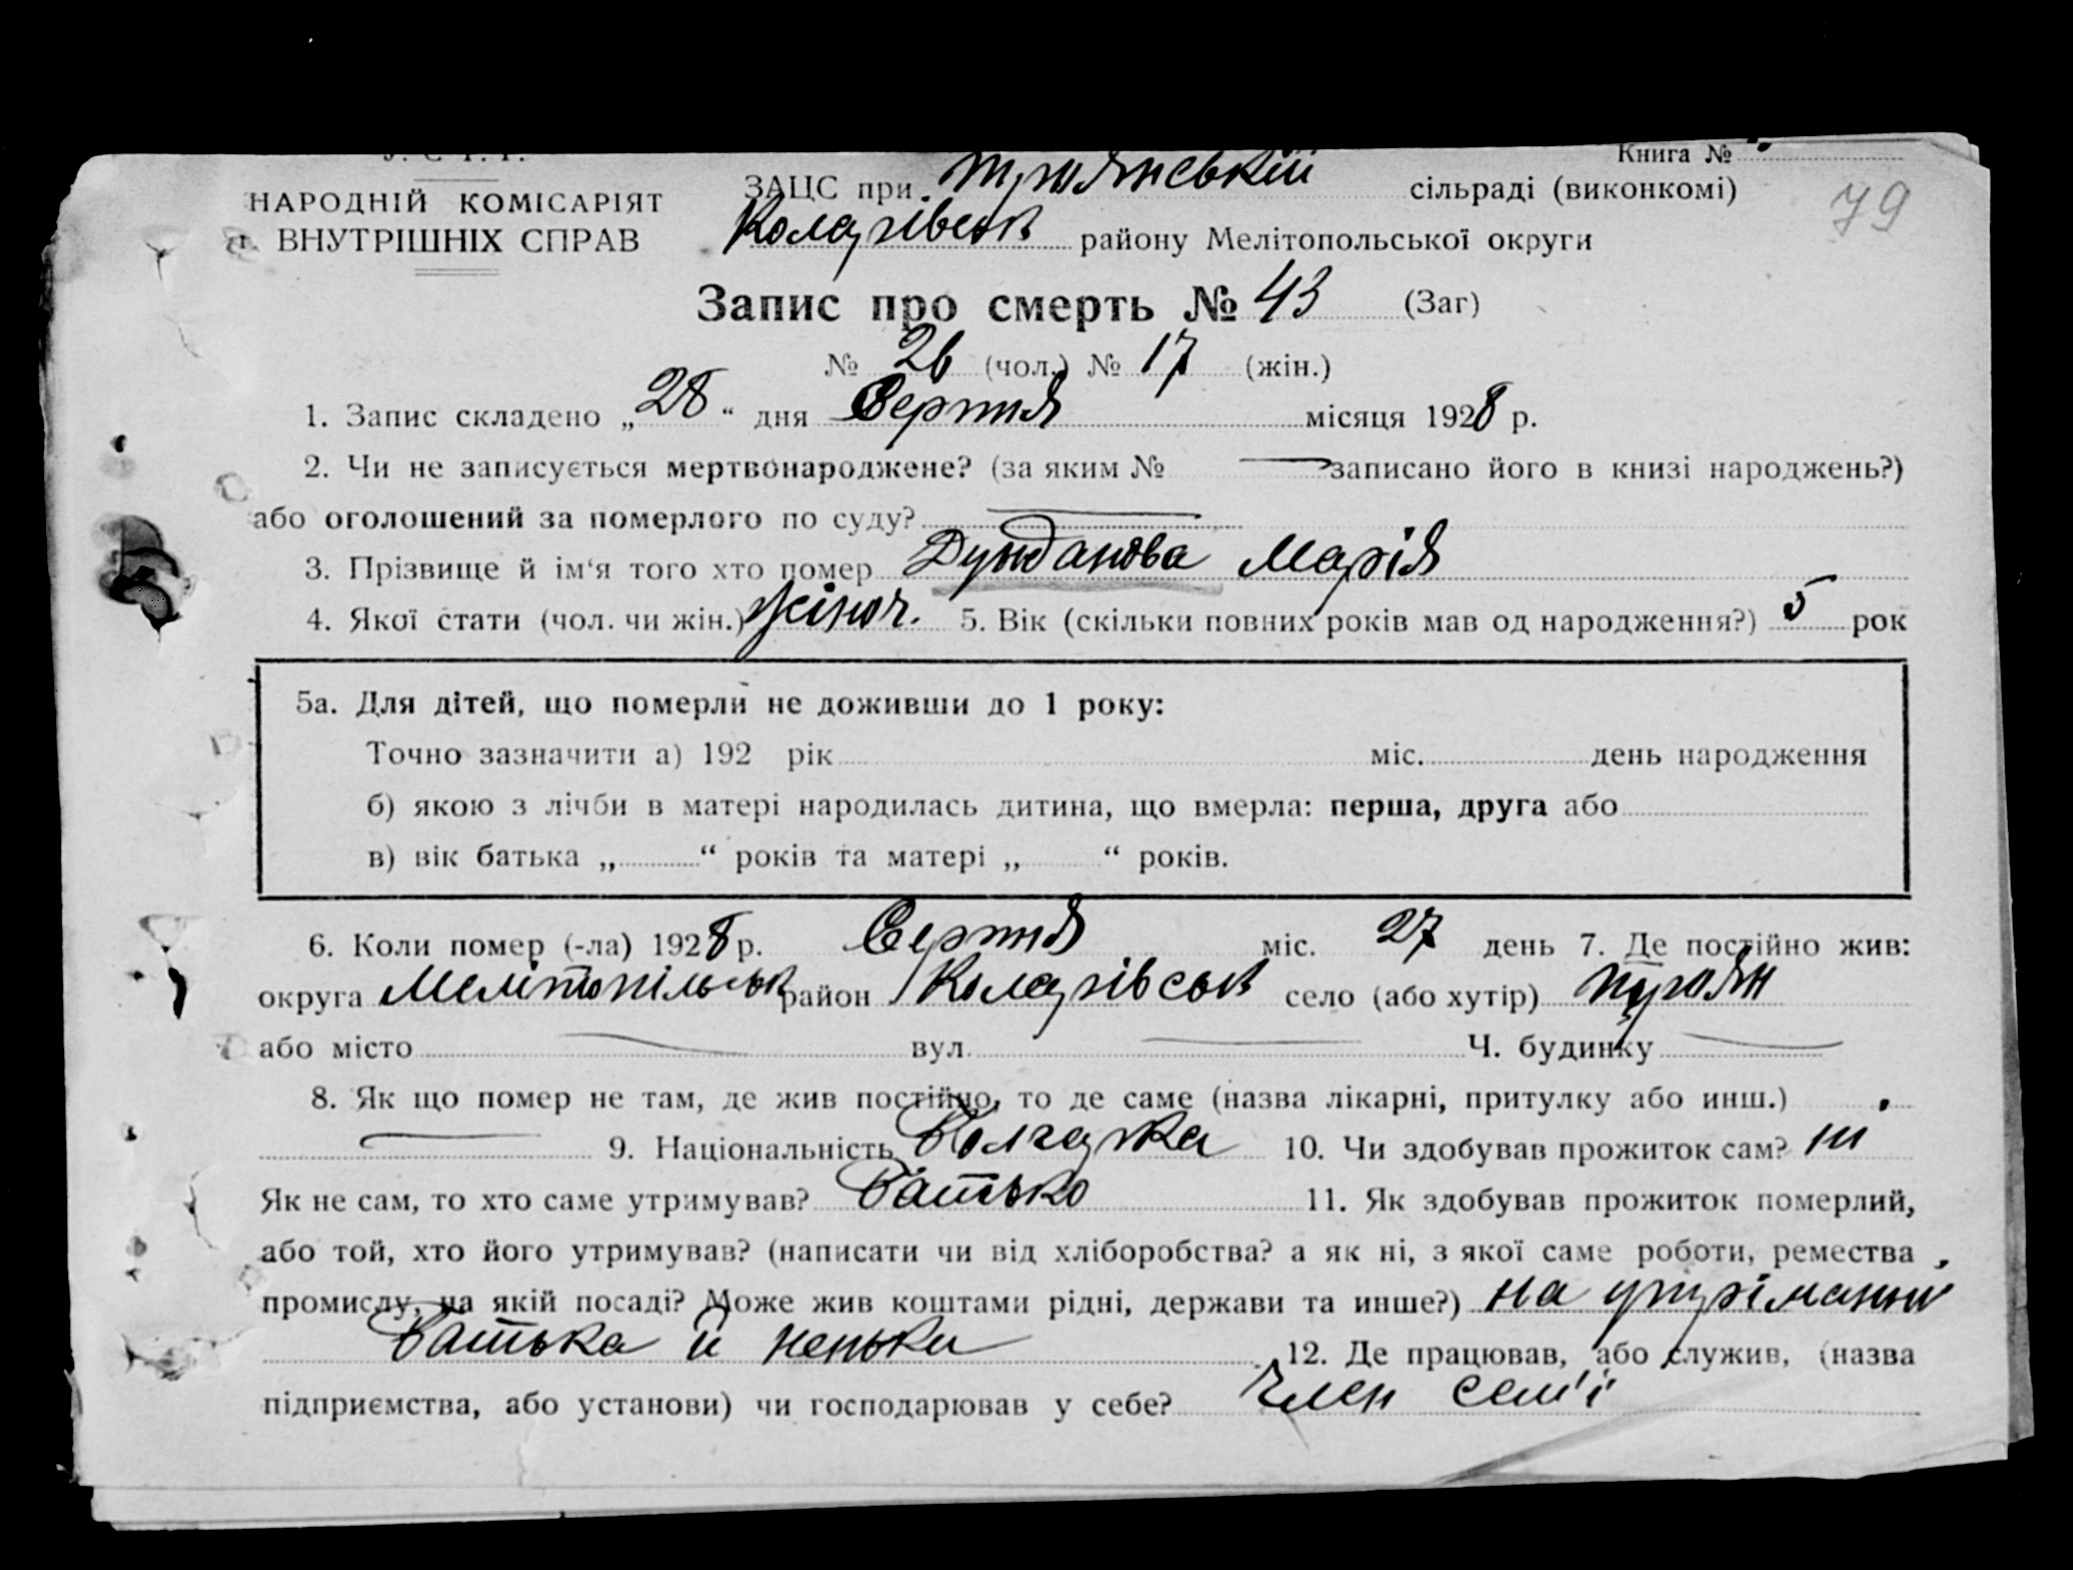 У. С. Р. Р.
Книга №
НАРОДНІЙ КОМІСАРІЯТ
ВНУТРІШНІХ СПРАВ
ЗАЦС при Троянській сільраді (виконкомі)
79
Коларівськ району Мелітопольської округи
Запис про смерть № 43 (Заг)
№ 26 (чол.) № 17 (жін.)
1. Запис складено „28“ дня Серпня місяця 1928 р.
2. Чи не записується мертвонароджене? (за яким № — записано його в книзі народжень?)
або оголошений за померлого по суду? —
3. Прізвище й ім‘я того хто помер Марія
4. Якої стати (чол. чи жін.) жіноч. 5. Вік (скільки повних років мав од народження?) 5 рок
5а. Для дітей, що померли не доживши до 1 року:
Точно зазначити а) 192 рік міс. день народження
б) якою з лічби в матері народилась дитина, що вмерла: перша, друга або
в) вік батька „ “ років та матері „ “ років.
6. Коли помер (-ла) 1928 р. Серпня міс. 27 день 7. Де постійно жив:
округа Мелітопільськ район Коларівськ село (або хутір) Троян
або місто — вул. — Ч. будинку —
8. Як що помер не там, де жив постійно, то де саме (назва лікарні, притулку або инш.)
— 9. Національність Болгарка 10. Чи здобував прожиток сам? ні
Як не сам, то хто саме утримував? Батько 11. Як здобував прожиток померлий,
або той, хто його утримував? (написати чи від хліборобства? а як ні, з якої саме роботи, ремества,
промислу, на якій посаді? Може жив коштами рідні, держави та инше?) на утріманні
Батька й неньки 12. Де працював, або служив, (назва
підприємства, або установи) чи господарював у себе? Член сем'ї